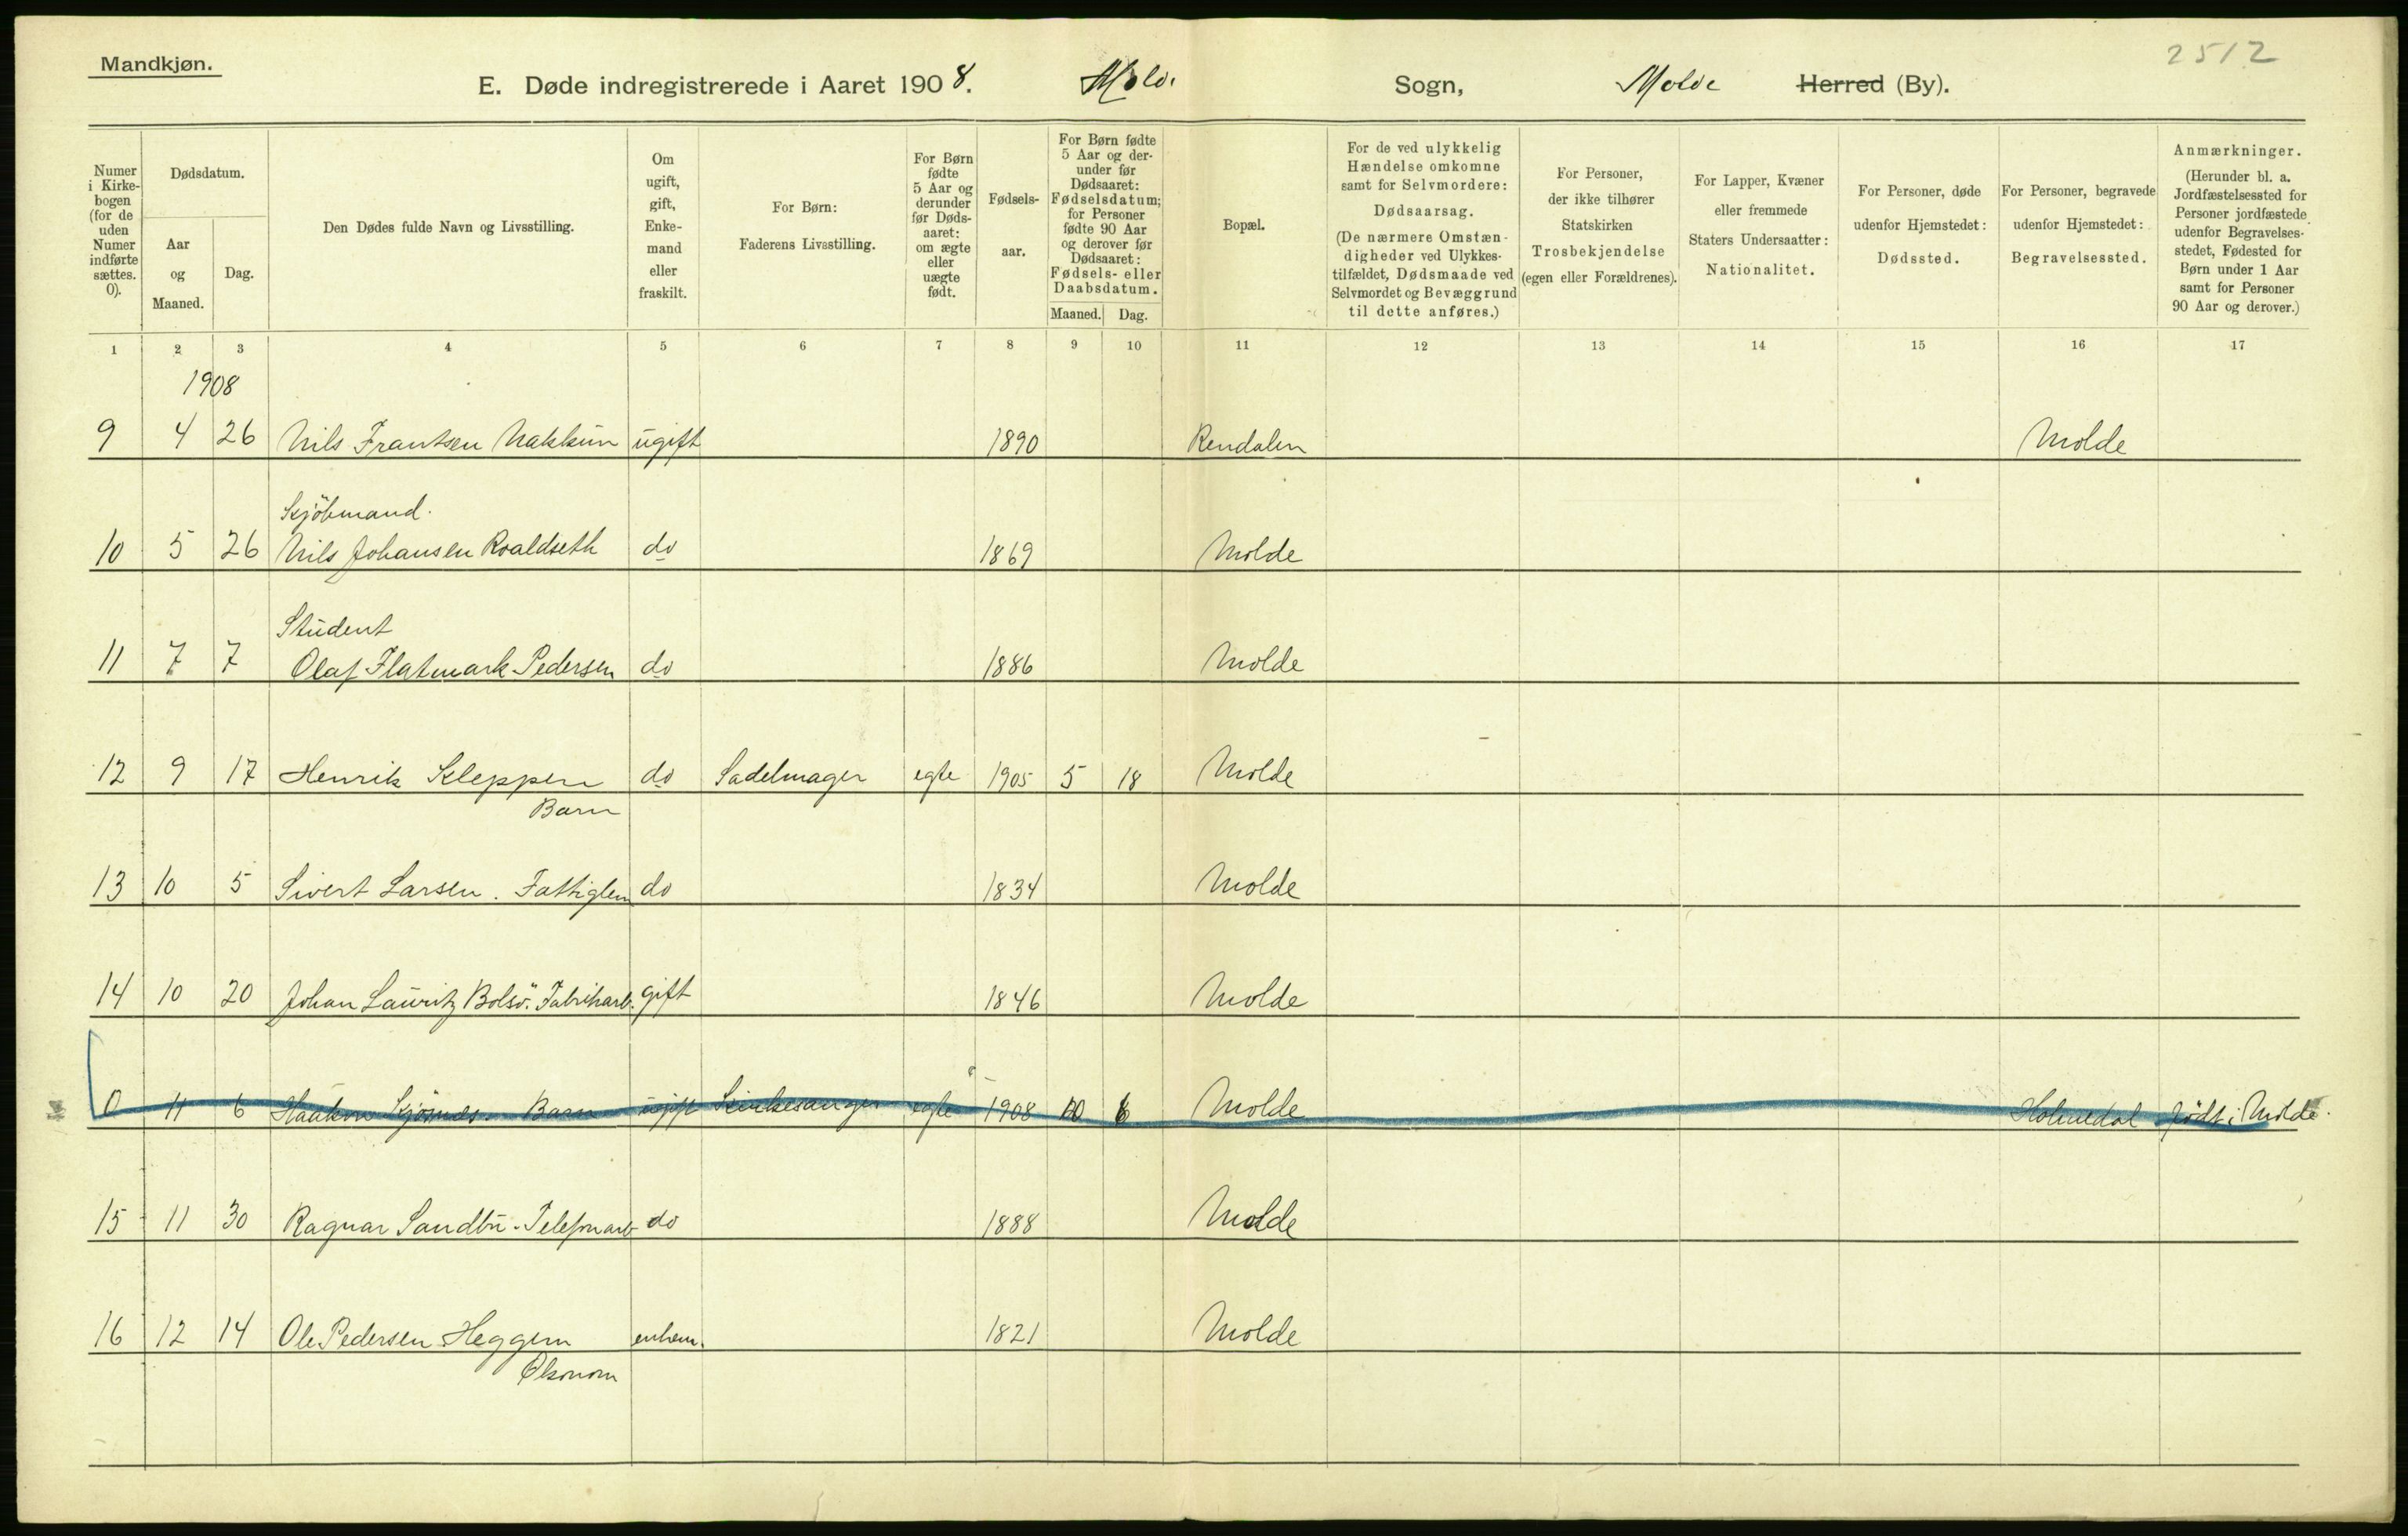 2512
Mandkjøn.
E. Døde indregistrerede i Aaret 1908. Molde Sogn, Molde Herred (By).
Numer i Kirkebogen (for de uden Numer indførte sættes. 0).
Dødsdatum.
Aar og Maaned.
Dag.
Den Dødes fulde Navn og Livsstilling.
Om ugift, gift, Enkemand eller fraskilt.
For Børn: Faderens Livsstilling.
For Børn fødte 5 Aar og derunder før Dødsaaret: om ægte eller uægte født.
Fødselsaar.
For Børn fødte 5 Aar og derunder før Dødsaaret: Fødselsdatum; for Personer fødte 90 Aar og derover før Dødsaaret: Fødsels- eller Daabsdatum.
Maaned. Dag.
Bopæl.
For de ved ulykkelig Hændelse omkomne samt for Selvmordere: Dødsaarsag. (De nærmere Omstændigheder ved Ulykkestilfældet, Dødsmaade ved Selvmordet og Bevæggrund til dette anføres.)
For Personer, der ikke tilhører Statskirken Trosbekjendelse (egen eller Forældrenes).
For Lapper, Kvæner eller fremmede Staters Undersaatter: Nationalitet.
For Personer, døde udenfor Hjemstedet: Dødssted.
For Personer, begravede udenfor Hjemstedet: Begravelsessted.
Anmærkninger. (Herunder bl. a. Jordfæstelsessted for Personer jordfæstede udenfor Begravelsesstedet, Fødested for Børn under 1 Aar samt for Personer 90 Aar og derover.)
1 2 3 4 5 6 7 8 9 10 11 12 13 14 15 16 17
1908
9 4 26 Nils Frantsen Nakkun ugift 1890 Rendalen Molde
Kjöbmand.
10 5 26 Nils Johansen Roaldseth do 1869 Molde
Student
11 7 7 Olaf Flatmark Pedersen do 1886 Molde
12 9 17 Henrik Kleppen do Sadelmager egte 1905 5 18 Molde
Barn
13 10 5 Sivert Larsen. Fattiglem do 1834 Molde
14 10 20 Johan Lauritz Bolsö. Fabrikarb. gift 1846 Molde
0 11 6 Haakon Kjörnes. Barn ugift Kirkesanger egte 1908 10 6 Molde Holmedal födt i Molde.
15 11 30 Ragnar Sandbu. Telefonarb do 1888 Molde
16 12 14 Ole Pedersen Heggem enkem. 1821 Molde
Økonom